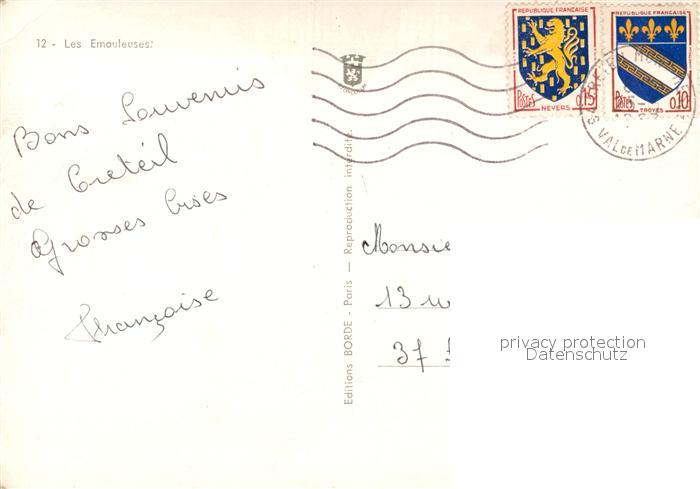 12 - Les Emouleuses.
Bons Souvenirs
de Creteil
Grosses bises
Françoise
Editions BORDE - Paris — Reproduction interdite.
REPUBLIQUE FRANÇAISE
POSTES 0,15
NEVERS
REPUBLIQUE FRANÇAISE
POSTES 0,10
TROYES
VAL DE MARNE
Monsie
13
37
privacy protection
Datenschutz